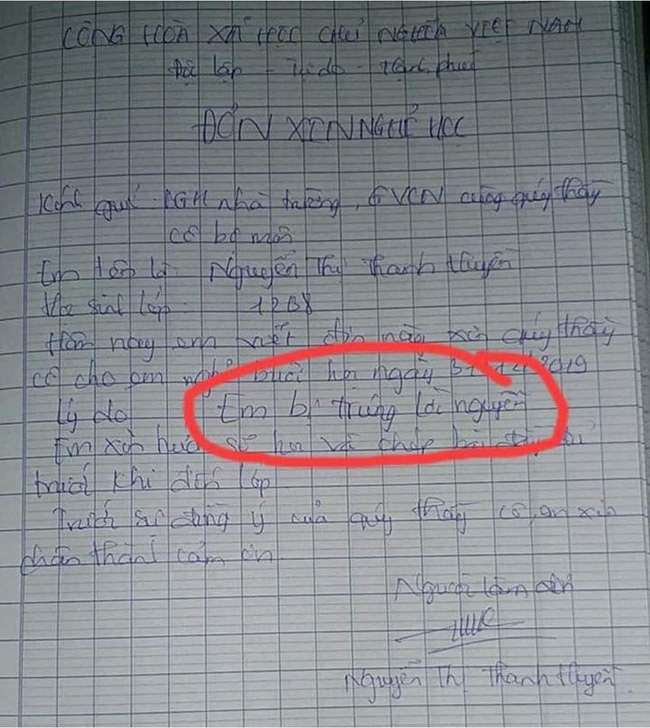 CỘNG HOÀ XÃ HỘI CHỦ NGHĨA VIỆT NAM
Độc lập - Tự do - Hạnh phúc
ĐƠN XIN NGHỈ HỌC
Kính gửi: BGH nhà trường, GVCN cùng quý thầy
cô bộ môn
Em tên là: Nguyễn Thị Thanh Huyền
Học sinh lớp: 12B8
Hôm nay em viết đơn này xin quý thầy
cô cho em nghỉ buổi học ngày 2019
Lý do Em bị trúng lời nguyền
Em xin hứa sẽ học và chép bài đầy đủ
trước khi đến lớp
Trước sự đồng ý của quý thầy cô, em xin
chân thành cảm ơn
Người làm đơn
Nguyễn Thị Thanh Huyền